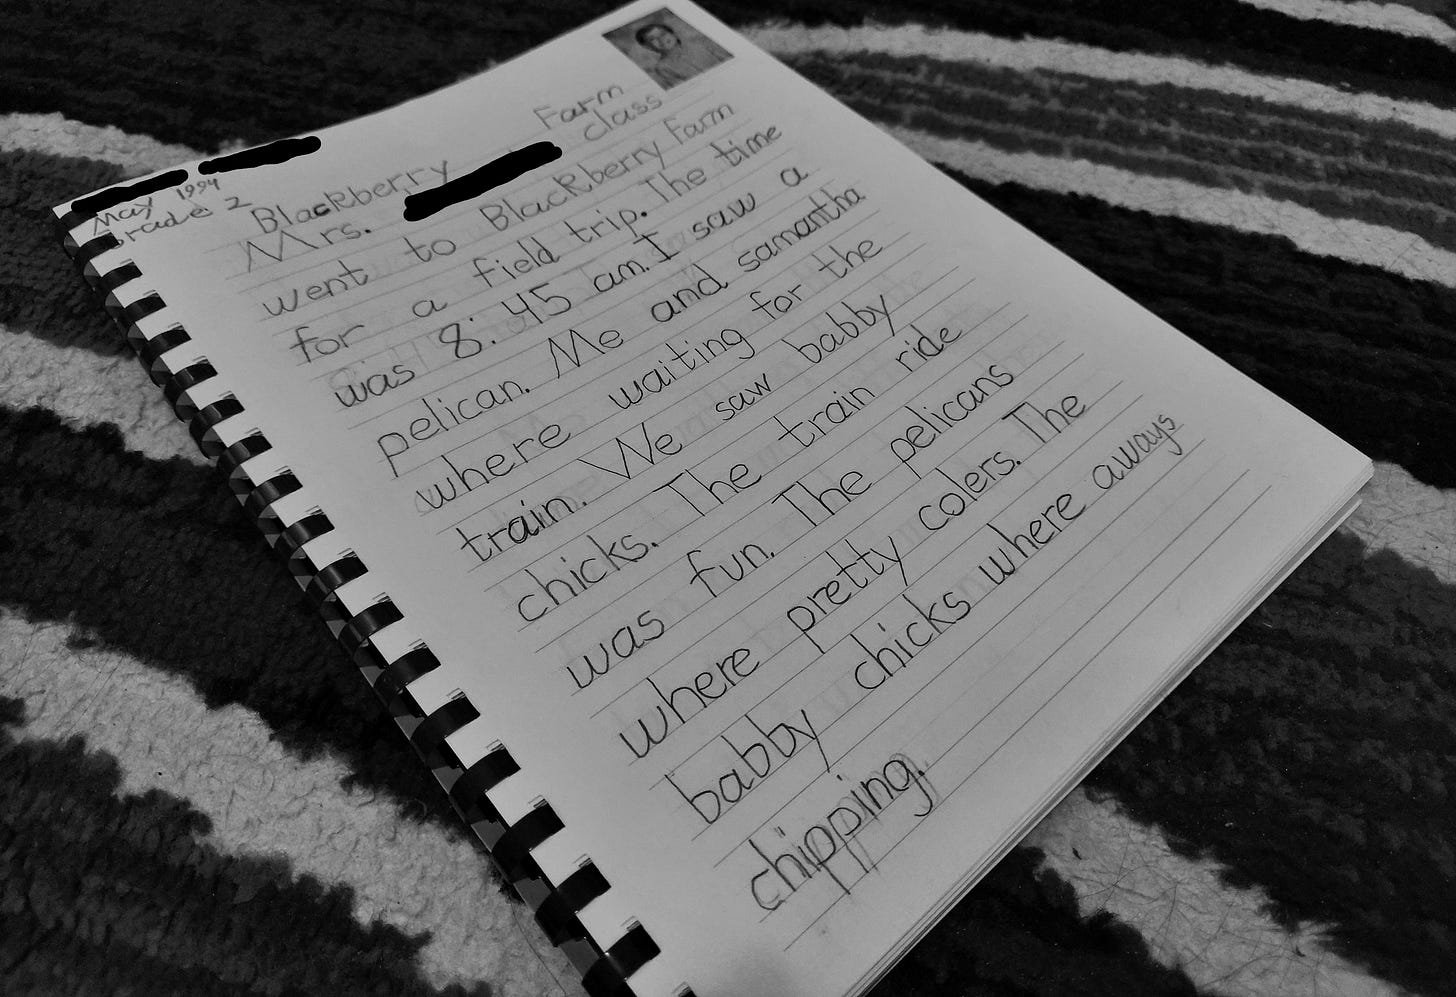 May 1994
Grade 2
Blackberry Farm
Mrs. class
went to Blackberry Farm
for a field trip. The time
was 8:45 am. I saw a
pelican. Me and samantha
where waiting for the
train. We saw babby
chicks. The train ride
was fun. The pelicans
where pretty colers. The
babby chicks where aways
chipping.